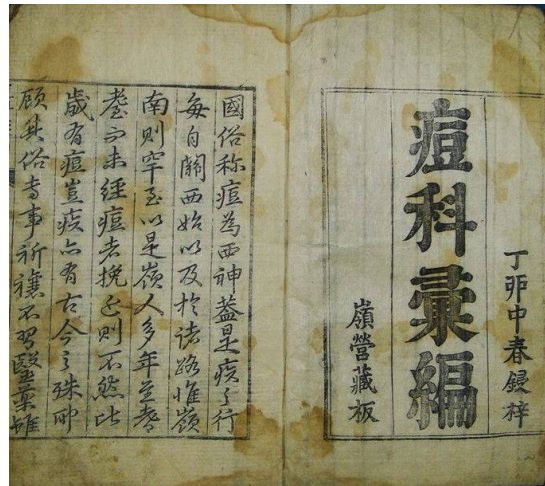 丁卯中春鋟梓
痘科彙編
嶺營藏板
國俗称痘為西神蓋是疾之行
每自關西始以及於諸路惟嶺
南則罕至以是嶺人多年至耆
耋而未經痘者挽近則不然比
歲有痘豈疾亦有古今之殊耶
顧其俗專事祈禳不習毉藥雖